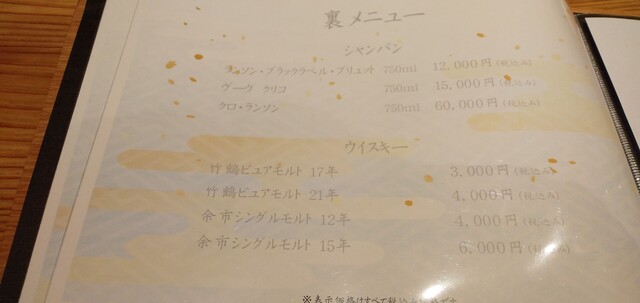 裏メニュー
シャンパン
ランソン・ブラックラベル・ブリュット 750ml 12,000円(税込み)
ヴーヴ クリコ 750ml 15,000円(税込み)
クロ・ランソン 750ml 60,000円(税込み)
ウイスキー
竹鶴ピュアモルト 17年 3,000円(税込み)
竹鶴ピュアモルト 21年 4,000円(税込み)
余市シングルモルト 12年 4,000円(税込み)
余市シングルモルト 15年 6,000円(税込み)
※表示価格はすべて税込み価格です